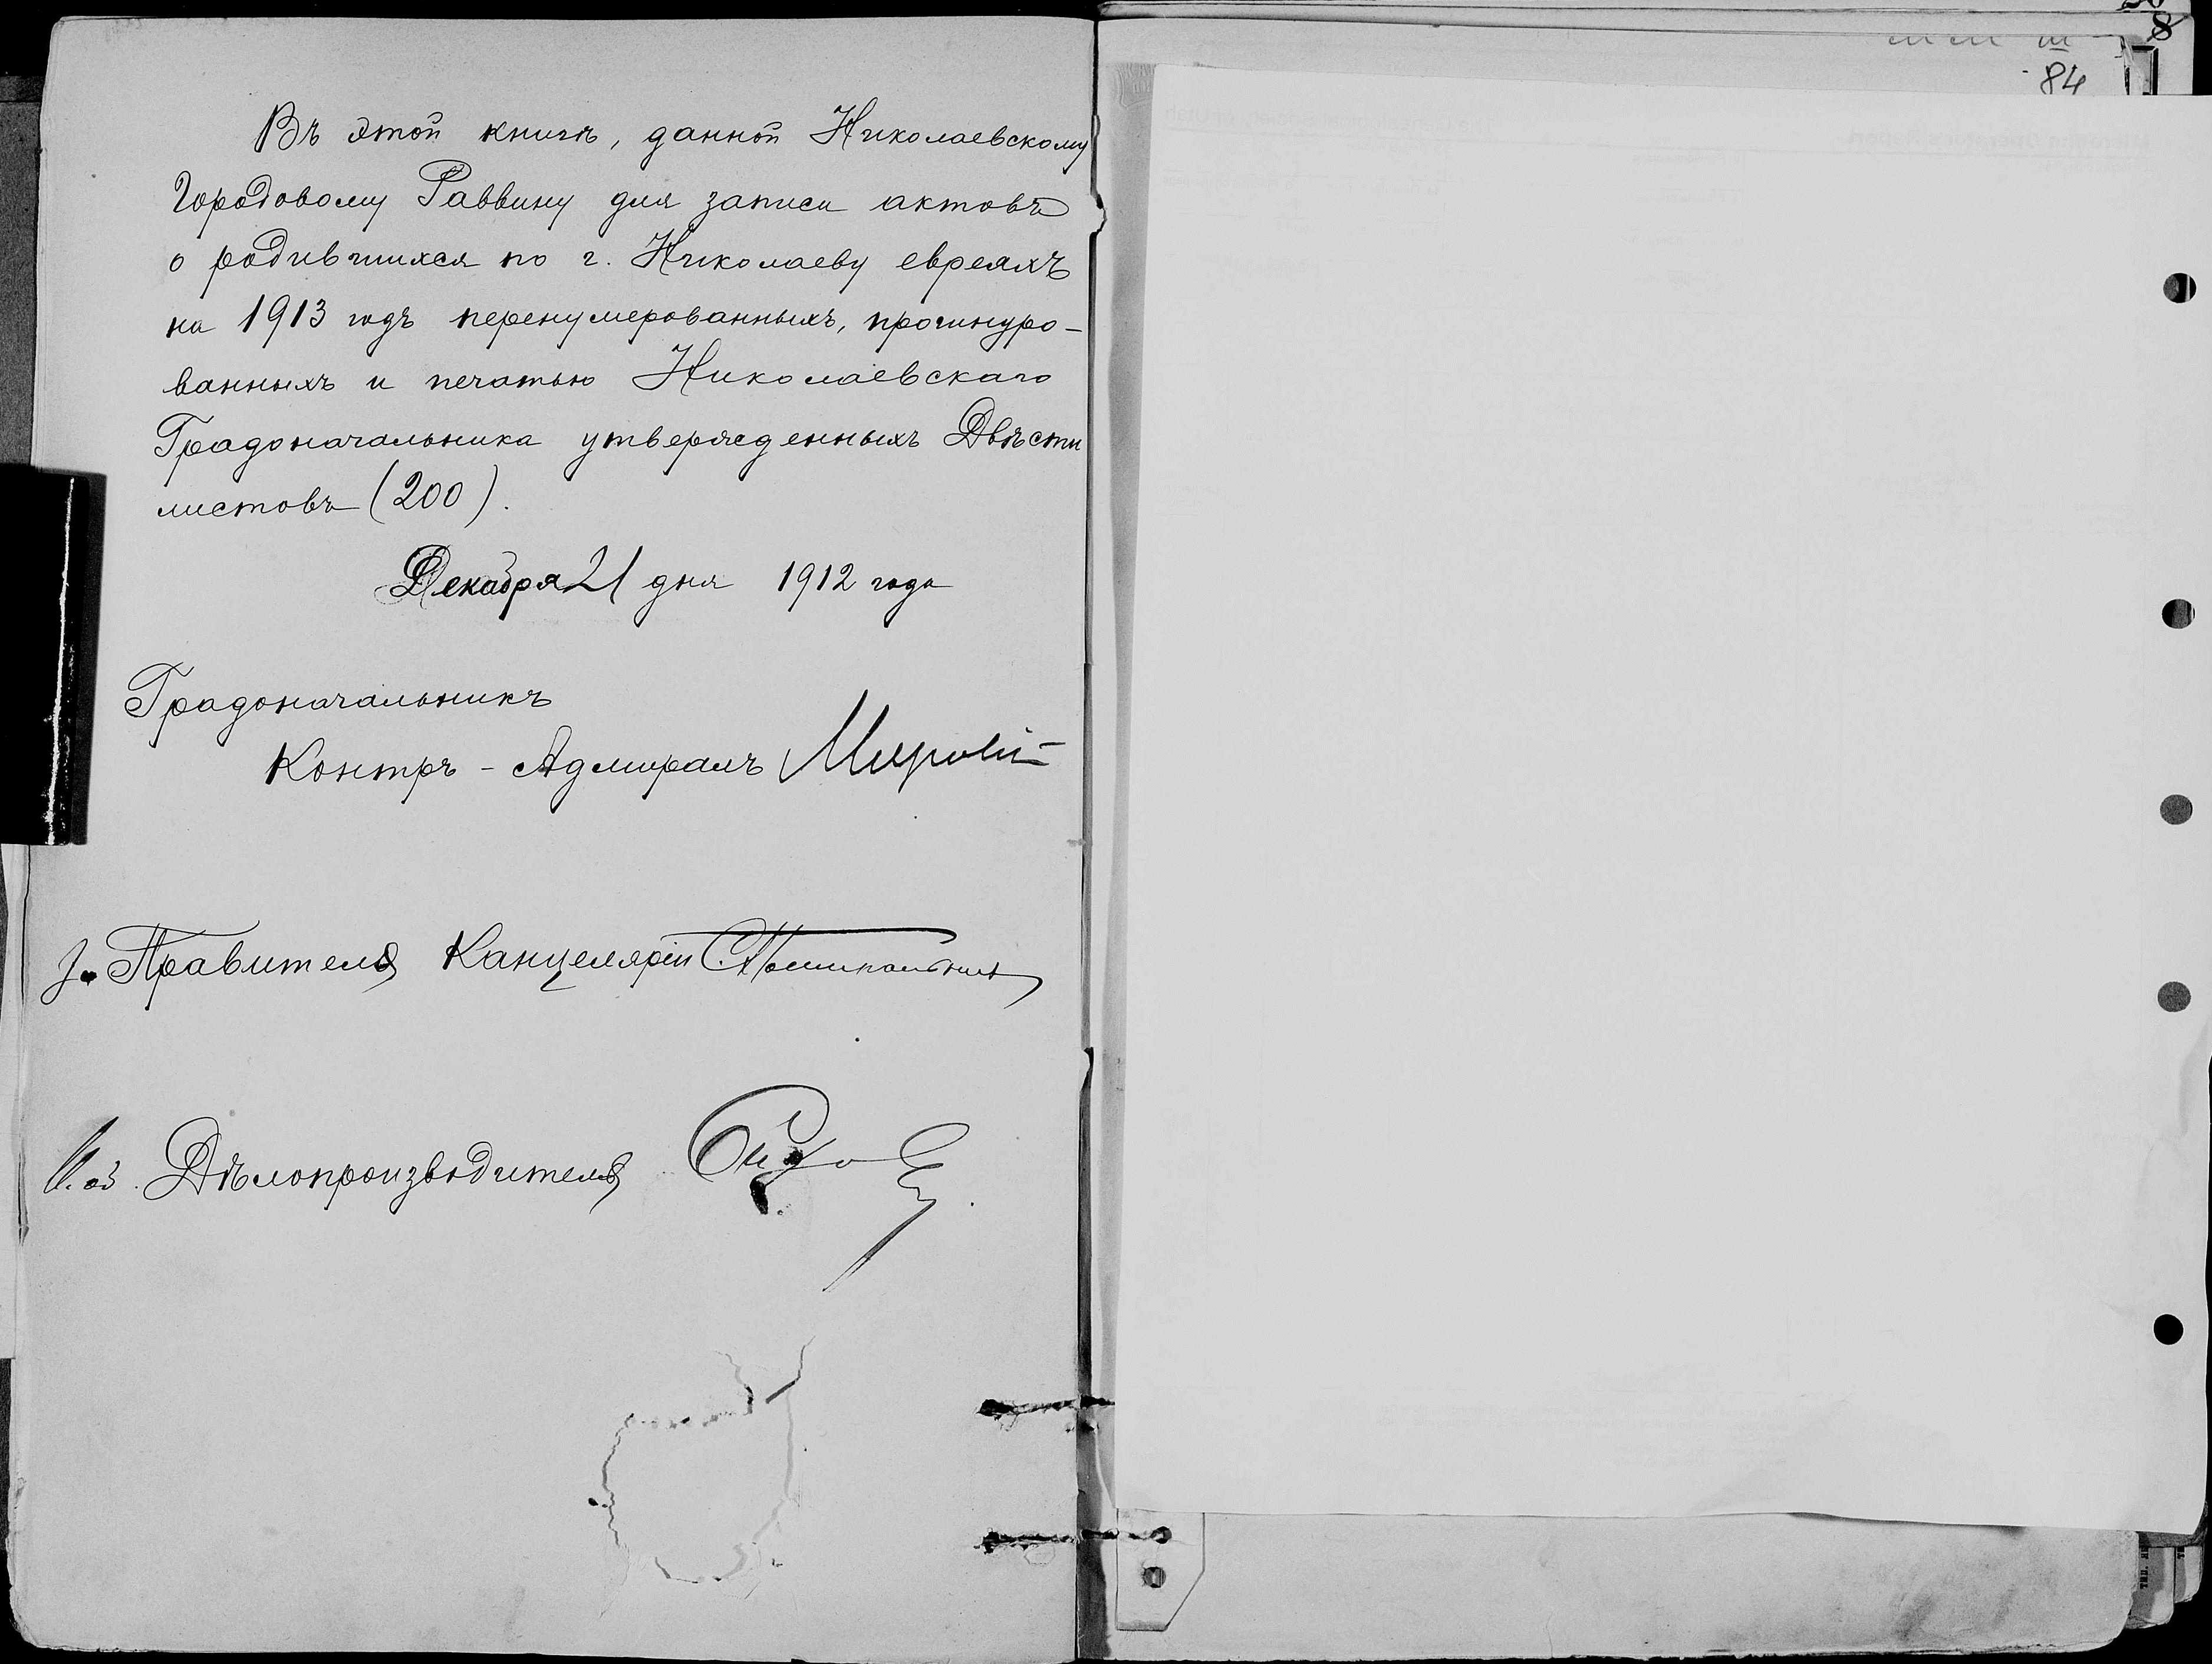 Въ этой книгѣ, данной Николаевскому
Городовому Раввину для записи актовъ
о родившихся по г. Николаеву евреяхъ
на 1913 годъ перенумерованныхъ, прошнуро-
ванныхъ и печатью Николаевскаго
Градоначальника утвержденныхъ Двѣсти
листовъ (200).
Декабря 21 дня 1912 года
Градоначальникъ
Контръ-Адмиралъ
Правителя Канцеляріи
И. об. Дѣлопроизводителя
8
84